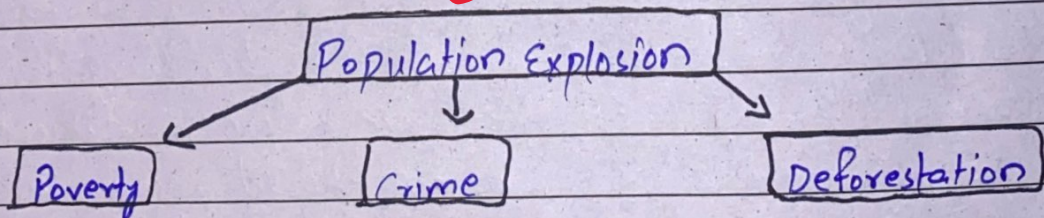 Population Explosion
Poverty Crime Deforestation